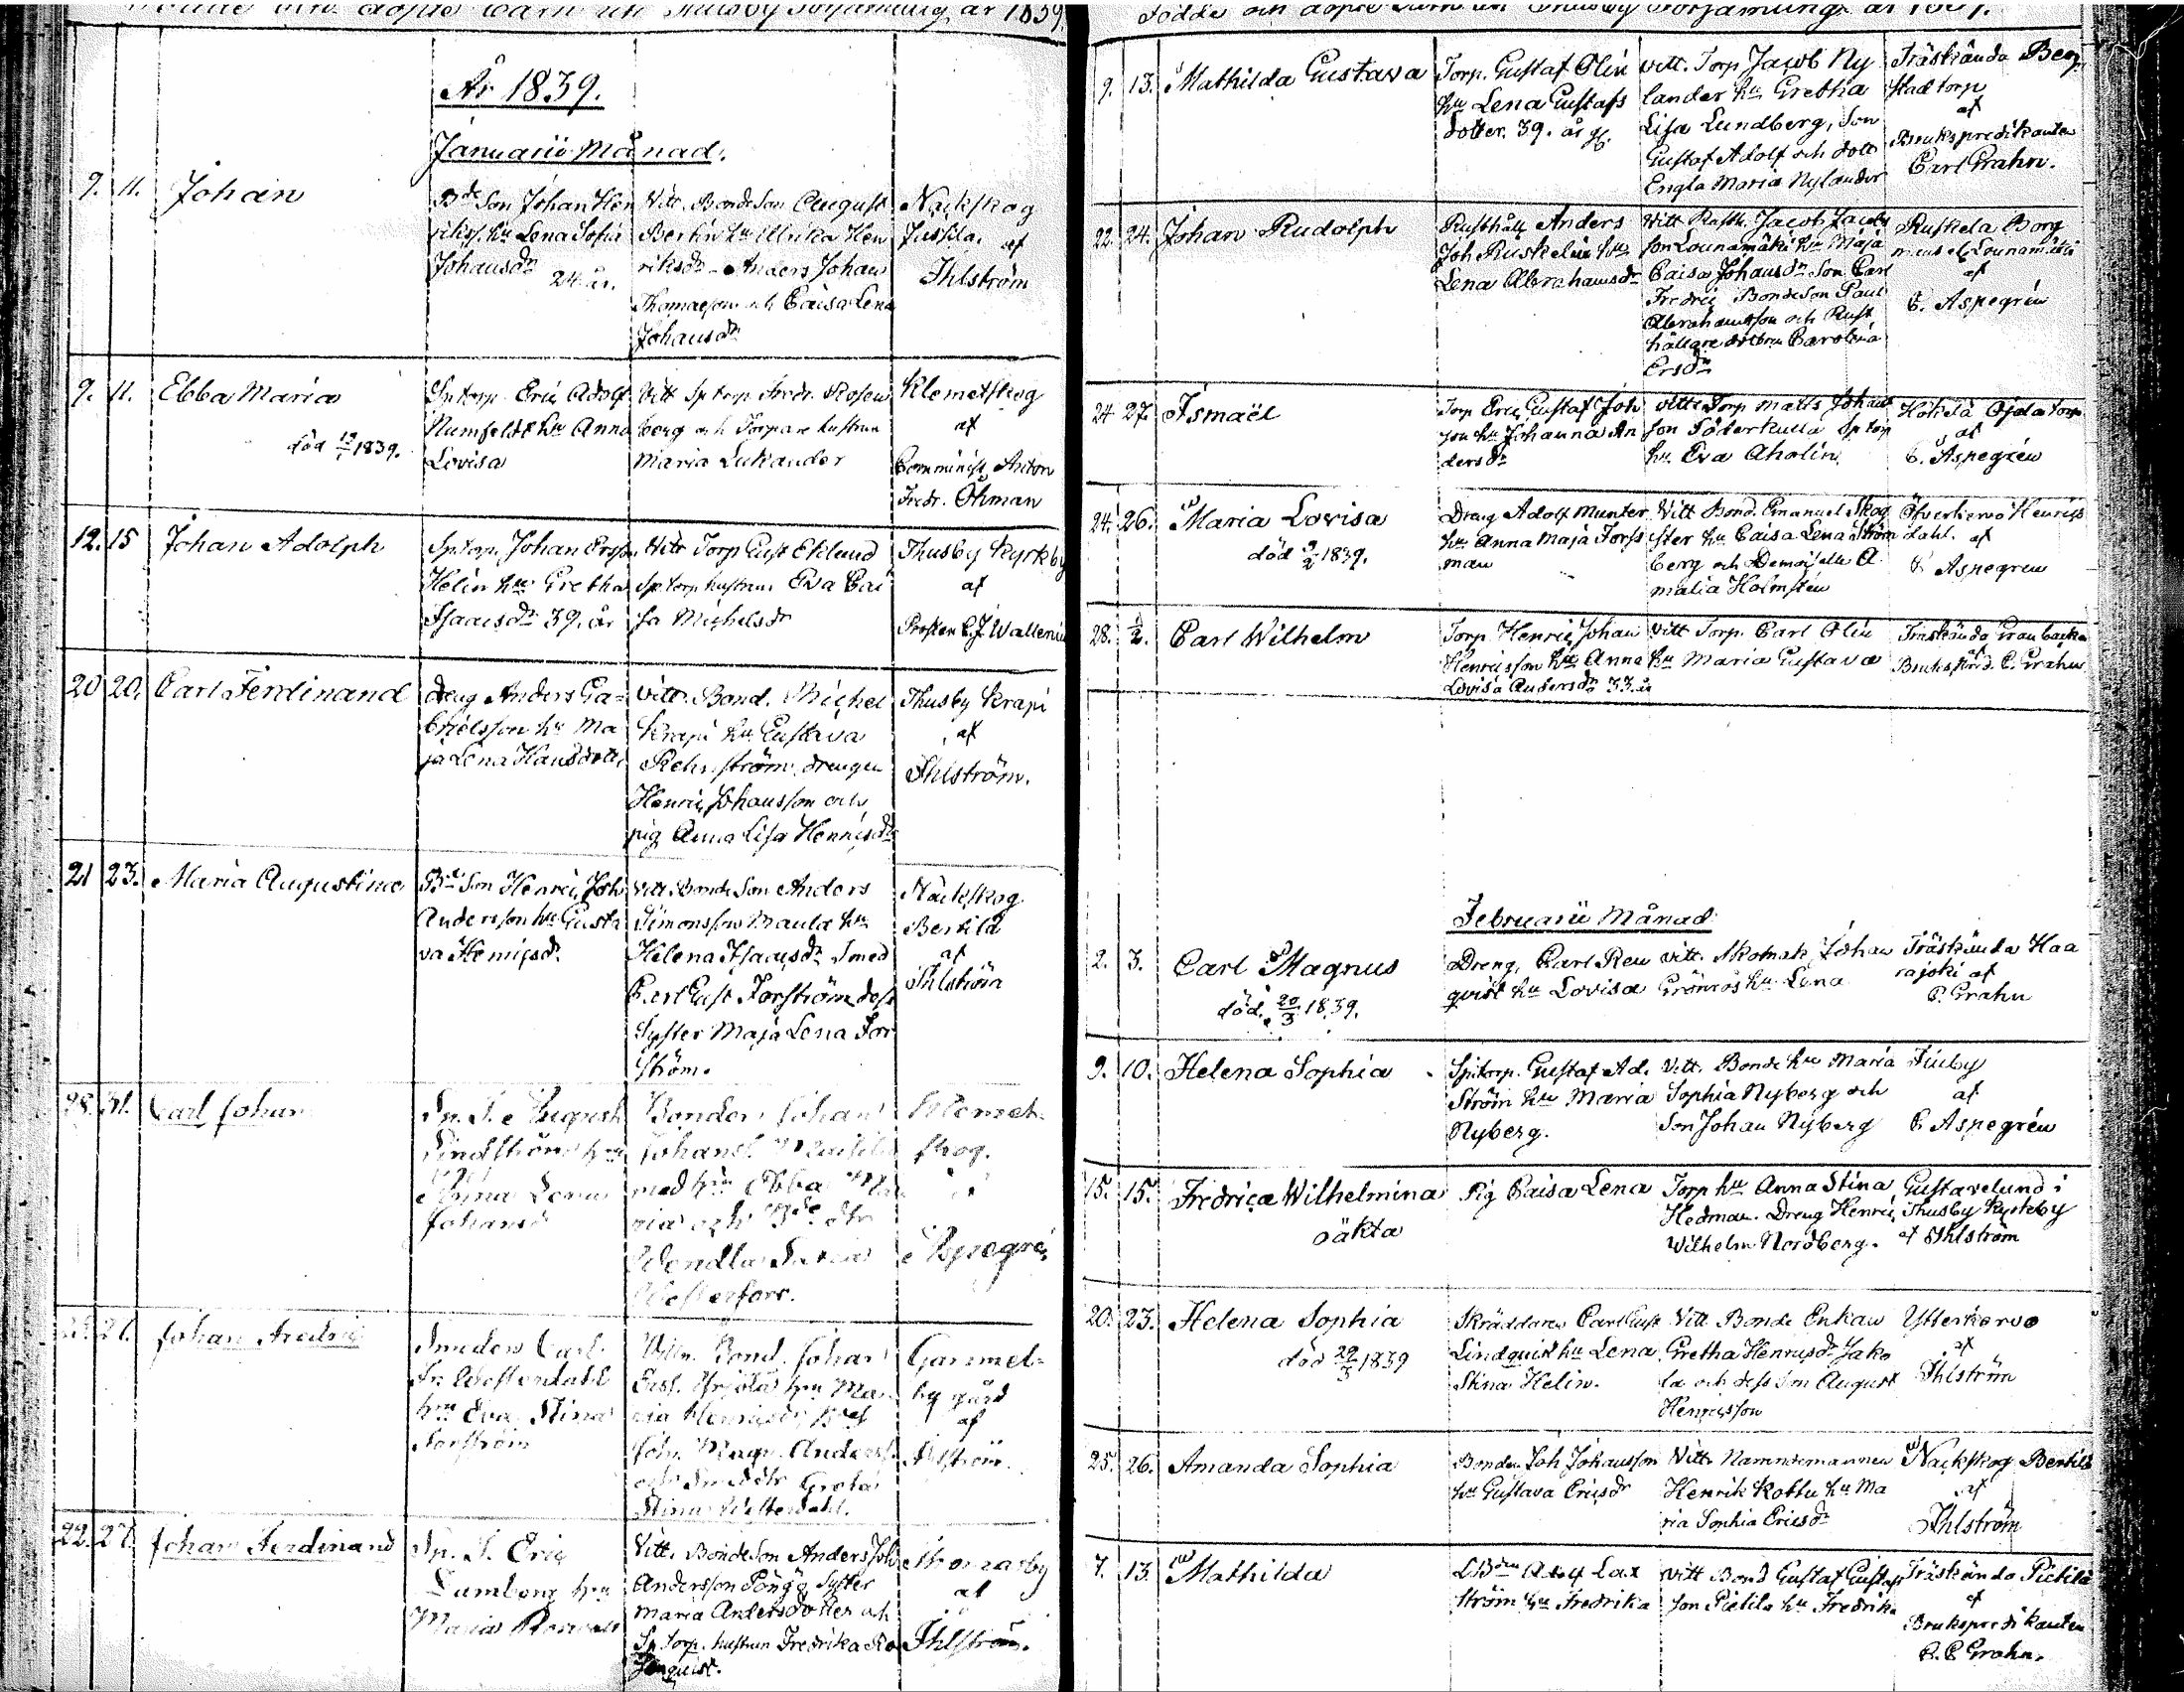 döpte barn år 1839
År 1839.
Januarii Månad.
9. 11. Johan
Bde Son Johan Hen
rikss. hu Lena Sofia
Johansdr
24 år.
Vitt. Bonde Son August
Bertin hu Ulrika Hen
riksdr Anders Johan
Thomasson och Caisa Lena
Johansdr
Nackskog
Jussila. af
Ihlström
9. 11. Ebba Maria
död 12/1 1839.
Sptorp Eric Adolf
Numfeldt hu Anna
Lovisa
Vitt Sptorp Fredr. Rosen
berg och Torpare hustrun
Maria Lukander
Klemetskog
af
Comminist. Anton
Fredr. Öhman
12. 15 Johan Adolph
Sptorp. Johan Ersson
Helin hu Gretha
Isaacsdr 39. år
Vitt Torp Gust Eklund
Sptorp hustrun Eva Cai
sa Michelsdr
Thusby Kyrkby
af
Prosten C. J. Wallenius
20 20. Carl Ferdinand
Dreng Anders Ga-
brielsson hu Ma
ja Lena Hansdotter
Vitt. Bond. Michel
Krapi hu Gustava
Rehnström, drengen
Henric Johansson och
pig Anna Lisa Henricsdr
Thusby Krapi
af
Ihlström.
21 23. Maria Augustina
Bde Son Henric Joh
Andersson hu Gusta
va Henricsdr.
Vitt. Bonde Son Anders
Simonsson Maula hu
Helena Isaacsdr Smed
Carl Gust Forström dess
Syster Maja Lena For
ström.
Nackskog
Bertila
af
Ihlström
28. 31. Carl Johan
Sp. T. August
Lindström hu
Anna Lena
Johansd
Bonden Johan
Johans.
med hu Ebba Ma
ria och Bde dtr
Wendla Maria
Westerfors.
Klemet-
skog.
af
Aspegrén
27. Johan Fredric
Smeden Carl
Fr. Westerdahl
hu Eva Stina
Forström
Vittn. Bond. Johan
hu Ma
ria Henricsdr
Joh. Magn. Anderss.
och Smeddtr Greta
Stina Westerdahl.
Gammel-
by gård
af
Ihlström.
22. 27. Johan Ferdinand
Sp. T. Eric
Lumberg hu
Maria
Vitt. Bonde Son Anders Joh
Andersson Pöngö Syster
Maria Andersdotter och
Sptorp. hustrun Fredrika Ro
senquist.
Thomasby
af
Ihlström.
Födde och döpte Barn uti Thusby Församling år 1839.
9. 13. Mathilda Gustava
Torp. Gustaf Olin
hu Lena Gustafs
dotter. 39. år gl.
Vitt. Torp Jacob Ny
lander hu Gretha
Lisa Lundberg, Son
Gustaf Adolf och dott
Engla Maria Nylander
Träskända Berg
stad torp
af
Brukspredikanten
Carl Grahn.
22. 24. Johan Rudolph
Rusthåll Anders
Joh Ruskelin hu
Lena Abrahamsdr
Vitt Rusth. Jacob Jacobs
son Lounamäki hu Maja
Caisa Johansdr Son Carl
Fredric Bonde Son Paul
Abrahamsson och Rust
hållare dottren Carolina
Ersdr
Ruskela Borg
Lounamäki
af
C. Aspegrén
24 27. Ismaël
Torp Eric Gustaf Joh
son hu Johanna An
dersdr
Vitt Torp Matts Johans
son Söderkulla Sptorp
hu. Eva Aholin.
Hotela Ojala torp
af
C. Aspegrén
24. 26. Maria Lovisa
död 9/2 1839.
Dreng Adolf Munter
hu Anna Maja Forss
man
Vitt Bond. Emanuel Skog
ster hu Caisa Lena Ström
berg och Demoiselle A
malia Holmstén
Öfverkervo Henricks
dahl. af
C. Aspegren
28. 1/2. Carl Wilhelm
Torp Henric Johan
Henricsson hu Anna
Lovisa Andersdr 33. år
Vitt Torp. Carl Olin
hu Maria Gustava
Träskända Granbacka
af
Brukspred. C. Grahn
Februarii Månad
2. 3. Carl Magnus
död. 20/3 1839.
Dreng. Carl Ren
qvist hu Lovisa
Vitt. Skomak Johan
Grönros hu Lena
Träskända Haa
rajoki af
C. Grahn
9. 10. Helena Sophia
Sptorp. Gustaf Ad.
Ström hu Maria
Nyberg.
Vitt. Bonde hu Maria
Sophia Nyberg och
Son Johan Nyberg
Finby
af
C. Aspegrén
15. 15. Fredrica Wilhelmina
oäkta
Pig Caisa Lena
Torp hu Anna Stina
Hedman. Dreng Henric
Wilhelm Nordberg.
Gustavelund i
Thusby Kyrkby
af Ihlström
20. 23. Helena Sophia
död 29/3 1839
Skräddaren Carl Gust
Lindquist hu Lena
Stina Helin.
Vitt Bonde Enkan
Gretha Henricsdr Jako
la och dess Son August
Henricsson
Ytterkervo
af
Ihlström
25. 26. Amanda Sophia
Bonden Joh Johansson
hu Gustava Ericsdr
Vitt. Nämndemannen
Henrik Kottu hu Ma
ria Sophia Ericsdr
Nackskog Bertila
af
Ihlström
7. 13. Mathilda
LBden Adolf Lax
ström hu Fredrika
Vitt Bond Gustaf Gustafs
son Pietilä hu Fredrika
Träskända Pietilä
af
Brukspredikanten
C. C. Grahn.